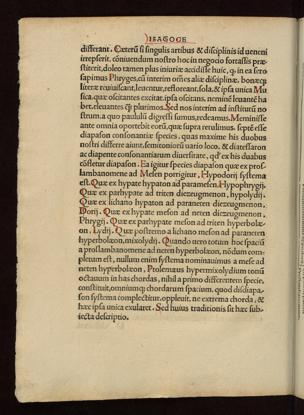 ISAGOGE
differant. Cæterū si singulis artibus & disciplinis id ueneni
irrepserit, coniuendum nostro hoc in negocio fortassis præ-
stiterit, doleo tamen plus iniuriæ accidisse huic, q̃ in ea sero
sapimus Phryges, cū interim oēs aliæ disciplinæ, bonæq́;
literæ reuiuiscant, leuentur, refloreant, sola, & ipsa unica Mu
sica, quæ oscitantes excitat, ipsa oscitans, neminē leuantē ha-
bet, eleuantes q̃ plurimos. Sed nos interim ad institutū no
strum, a quo paululū digressi sumus, redeamus. Meminisse
ante omnia oportebit eorū, quæ supra retulimus. septē esse
diapason consonantiæ species, quas maxime his duobus
nostri differre aiunt, semitoniorū uario loco, & diatessaron
ac diapente consonantiarum diuersitate, qd' ex his duabus
cōstetur diapason. Ea igitur species diapason quæ ex pros
lambanomene ad Mesen porrigitur, Hypodorij systema
est. Quæ ex hypate hypaton ad paramesen, Hypophrygij.
Quæ ex parhypate ad triten diezeugmenon, hypolydij.
Quæ ex lichano hypaton ad paraneten diezeugmenon,
Dorij. Quæ ex hypate meson ad neten diezeugmenon,
Phrygij. Quæ ex parhypate meson ad triten hyperbolæ-
on, Lydij. Quæ postremo a lichano meson ad paraneten
hyperbolæon, mixolydij. Quando uero totum hoc spaciū
a proslambanomene ad neten hyperbolæon, nōdum com-
pletum est, nullum enim systema nominauimus a mese ad
neten hyperbolæon, Ptolemæus hypermixolydium tonū
octauum in has chordas, nihil a primo differentem specie,
constituit, omniumq́; chordarum spacium, quod disdiapa-
son systema complectitur, oppleuit, ne extrema chorda, &
hæc ipsa unica exularet. Sed huius traditionis sit hæc sub-
iecta descriptio.